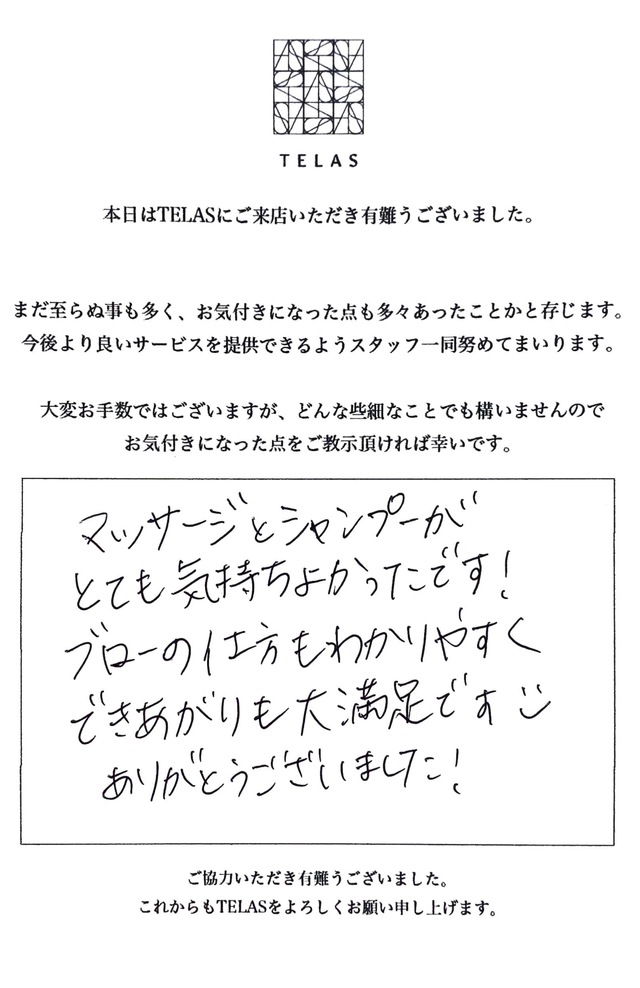 TELAS
本日はTELASにご来店いただき有難うございました。
まだ至らぬ事も多く、お気付きになった点も多々あったことかと存じます。
今後より良いサービスを提供できるようスタッフ一同努めてまいります。
大変お手数ではございますが、どんな些細なことでも構いませんので
お気付きになった点をご教示頂ければ幸いです。
マッサージとシャンプーが
とても気持ちよかったです!
ブローの仕方もわかりやすく
できあがりも大満足です
ありがとうございました!
ご協力いただき有難うございました。
これからもTELASをよろしくお願い申し上げます。